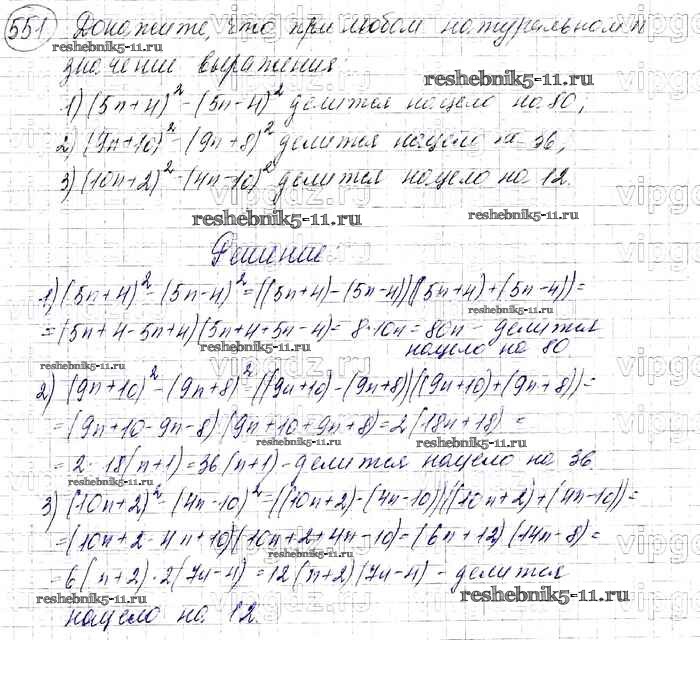 551 Докажите, что при любом натуральном n
reshebnik5-11.ru
значение выражения:
reshebnik5-11.ru
1) (5n+4)² - (5n-4)² делится нацело на 80,
2) (9n+10)² - (9n+8)² делится нацело на 36,
3) (10n+2)² - (4n-10)² делится нацело на 12.
reshebnik5-11.ru
reshebnik5-11.ru
Решение:
1) (5n+4)² - (5n-4)² = ((5n+4) - (5n-4))((5n+4) + (5n-4)) =
reshebnik5-11.ru
= (5n+4-5n+4)(5n+4+5n-4) = 8·10n = 80n - делится
reshebnik5-11.ru
нацело на 80
reshebnik5-11.ru
2) (9n+10)² - (9n+8)² = ((9n+10) - (9n+8))((9n+10) + (9n+8)) =
= (9n+10-9n-8)(9n+10+9n+8) = 2(18n+18) =
reshebnik5-11.ru
reshebnik5-11.ru
= 2·18(n+1) = 36(n+1) - делится нацело на 36.
reshebnik5-11.ru
3) (10n+2)² - (4n-10)² = ((10n+2) - (4n-10))((10n+2) + (4n-10)) =
= (10n+2-4n+10)(10n+2+4n-10) = (6n+12)(14n-8) =
reshebnik5-11.ru
= 6(n+2)·2(7n-4) = 12(n+2)(7n-4) - делится
reshebnik5-11.ru
reshebnik5-11.ru
нацело на 12.